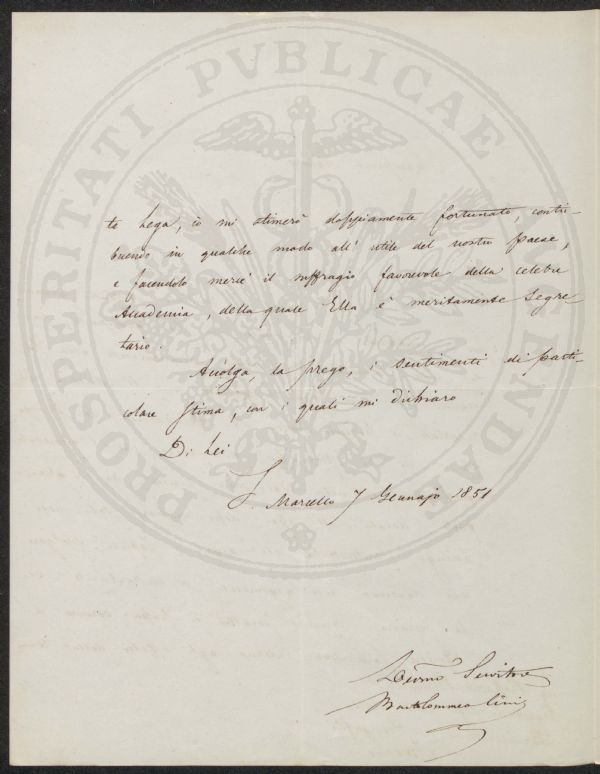 PROSPERITATI PVBLICAE AVGENDAE
te Lega, io mi stimerò doppiamente fortunato, contri-
buendo in qualche modo all' utile del nostro Paese,
e facendolo mercè il suffragio favorevole della celebre
Accademia, della quale Ella è meritamente Segre
tario.
Accolga, la prego, i sentimenti di parti-
colare stima, con i quali mi dichiaro
Di Lei
S. Marcello 7 Gennajo 1851
Devmo Servitore
Bartolommeo Cini